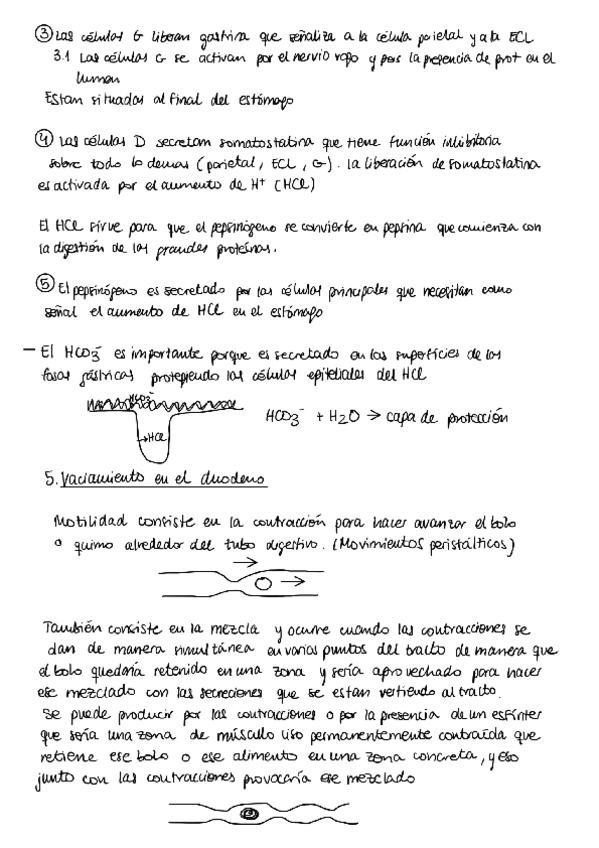 ③ Las células G liberan gastrina que señaliza a la célula parietal y a la ECL
3.1 Las células G se activan por el nervio vago y por la presencia de prot en el
lumen
Estan situadas al final del estómago
④ Las células D secretan somatostatina que tiene función inhibitoria
sobre todo lo demas (parietal, ECL, G). la liberación de somatostatina
es activada por el aumento de H+ (HCl)
El HCl sirve para que el pepsinógeno se convierte en pepsina que comienza con
la digestión de las grandes proteínas.
⑤ El pepsinógeno es secretado por las células principales que necesitan como
señal el aumento de HCl en el estómago
— El HCO3- es importante porque es secretado en las superfícies de las
fosas gástricas protegiendo las células epiteliales del HCl
HCO3-
HCO3- + H2O → capa de protección
→HCl
5. Vaciamiento en el duodeno
Motilidad consiste en la contracción para hacer avanzar el bolo
o quimo alrededor del tubo digestivo. (Movimientos peristálticos)
También consiste en la mezcla y ocurre cuando las contracciones se
dan de manera simultánea en varios puntos del tracto de manera que
el bolo quedaría retenido en una zona y sería aprovechado para hacer
ese mezclado con las secreciones que se estan vertiendo al tracto.
Se puede producir por las contracciones o por la presencia de un esfínter
que sería una zona de músculo liso permanentemente contraída que
retiene ese bolo o ese alimento en una zona concreta, y eso
junto con las contracciones provocaría ese mezclado